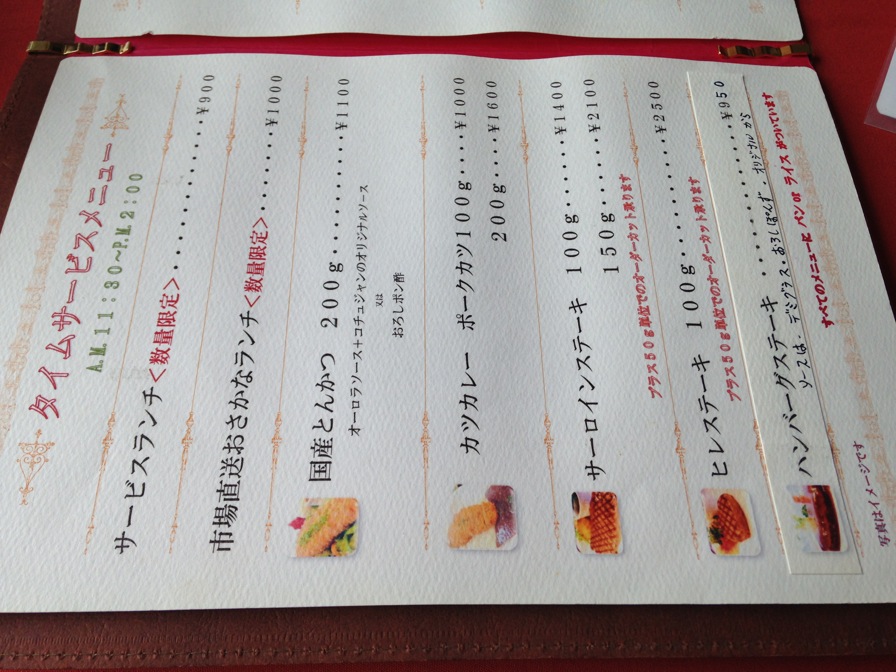 タイムサービスメニュー
A.M.11:30～P.M.2:00
サービスランチ＜数量限定＞・・・・・・・・・・・・¥900
市場直送おさかなランチ＜数量限定＞・・・・・・・¥1000
国産とんかつ 200g・・・・・・・・・・・¥1100
オーロラソース＋コチュジャンのオリジナルソース
又は
おろしポン酢
カツカレー ポークカツ100g・・・・¥1000
200g・・・・¥1600
サーロインステーキ 100g・・・・・・¥1400
150g・・・・・・¥2100
プラス50g単位でのオーダーカット承ります
ヒレステーキ 100g・・・・・・・・・・・¥2500
プラス50g単位でのオーダーカット承ります
ハンバーグステーキ ・・・・・・・・・・・・¥950
ソースは、デミグラス・おろしぽんず・オリジナルから
すべてのメニューに パン or ライス がついています
写真はイメージです